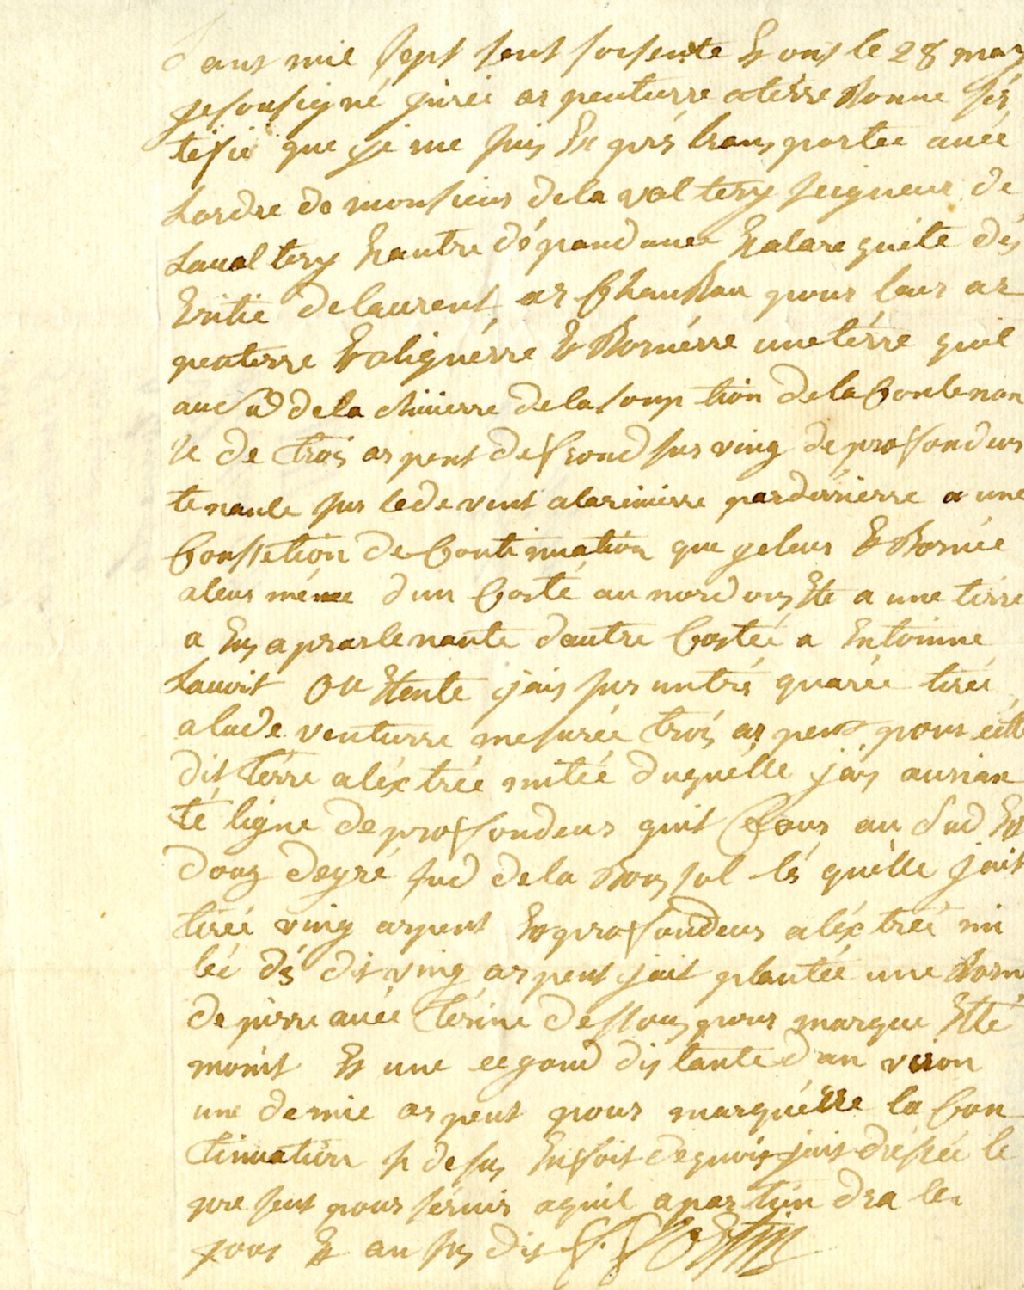 Lans mil sept sent soisente & onz le 28 mars
je sousigné juréé arpenturre a térrebonne sér
tifié que je me suis Exprés transportée avéé
Lordre de monsieur dela valtery seigneur de
Lavaltery & autre dépandance & alarequéte dés
Eritié delaurent archanbau pour leur ar
penterre & alignérre & Bornérre une térre quil
au Sud dela rivierre delasomption dela Contenan
se de trois arpent de frond sur ving de profondeur
tenante sur ledevent alarivierre parderrierre a une
Conssetion de Continuation que jeleur & Bornéé
aleur méme dun Costé au nordouEste a une térre
a Eus aprartenante dautre Costéé a Entoinne
Lauoit Ou Etente jais sur untré quaréé tiréé
alade venturre mesuréé trois arpent pour cétte
dit térre aléxtréé mitéé duquélle jais aurian
té ligne de profondeur quit Cour au Sud Est
douz degré sud dela Bousol lés quélle jait
tiréé ving arpent Enprofondeur aléxtréé mi
téé dés dit ving arpent jait plantéé une Born
de pierre avéé térine dessous pour marque Eté
moint & une segond distante danviron
une demie arpent pour marquérre la Con
tinuation si desus Enfoit dequois jait drésséé le
pressent pour servir aquil apartiendra les
jour & an sus dit